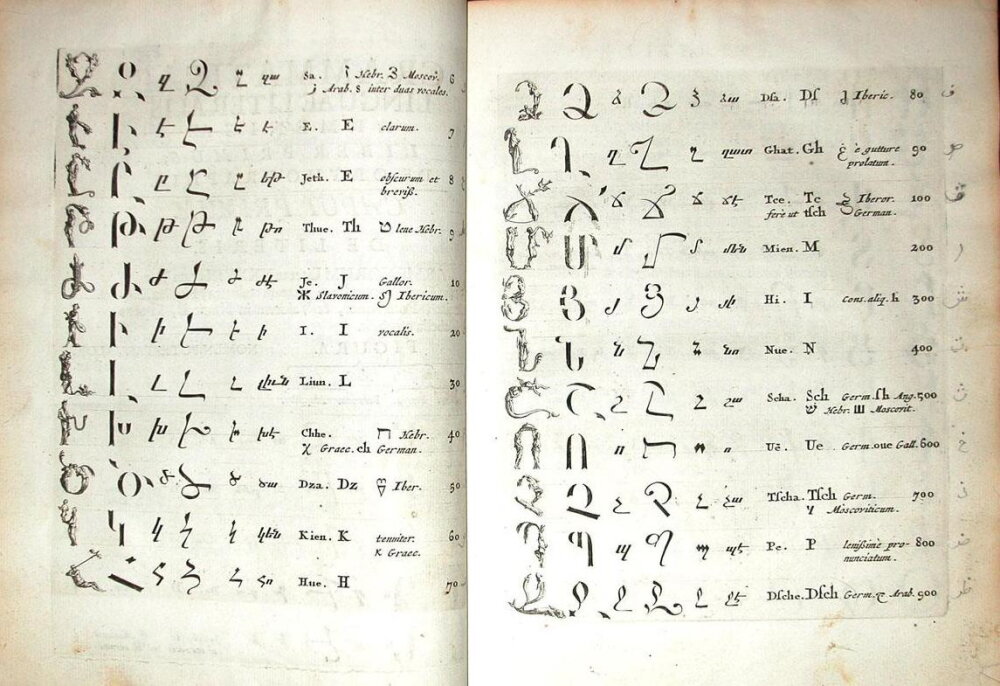 Sa. Hebr. Moscov. 6
Arab. s inter duas vocales.
Է է E. E clarum. 7
Ը ը ըթ Jeth. E obscurum et 8
breviß.
Թ թ Թ թ թո Thue. Th ט lene Hebr. 9
Ժ ժ Ժ ժ ժէ Je. J Gallor. 10
Ж Slavonicum. Ibericum.
Ի ի ի I. I vocalis. 20
Լ լ լ լիւն Liun. L 30
Խ խ խ խէ Chhe. ח Hebr. 40
χ Graec. ch German.
Ծ ծ Ծ ծ ծա Dza. Dz Iber. 50
Կ կ կ կեն Kien. K tenuiter. 60
κ Graec.
Հ հ հո Hue. H 70
Ձ ձ Ձ ձ ձա Dsa. Ds Iberic. 80
Ղ ղ Ղ ղ ղատ Ghat. Gh è gutture 90
prolatum.
Ճ ճ Ճ ճ ճէ Tce. Tc Iberor. 100
fere ut tsch German.
Մ մ մ մեն Mien. M 200
Յ յ Յ յ յի Hi. I cons. aliq. h 300
Ն ն Ն ն նո Nue. N 400
Շ շ Շ շ շա Scha. Sch Germ. sh Ang. 500
ש Hebr. Ш Moscovit.
Ո ո ո Uē. Ue Germ. oue Gall. 600
Չ չ Չ չ չա Tscha. Tsch Germ. 700
Ч Moscoviticum.
Պ պ Պ պ պէ Pe. P lenissimè pro- 800
nunciatum.
Ջ ջ Ջ ջ ջէ Dsche. Dsch Germ. Arab. 900